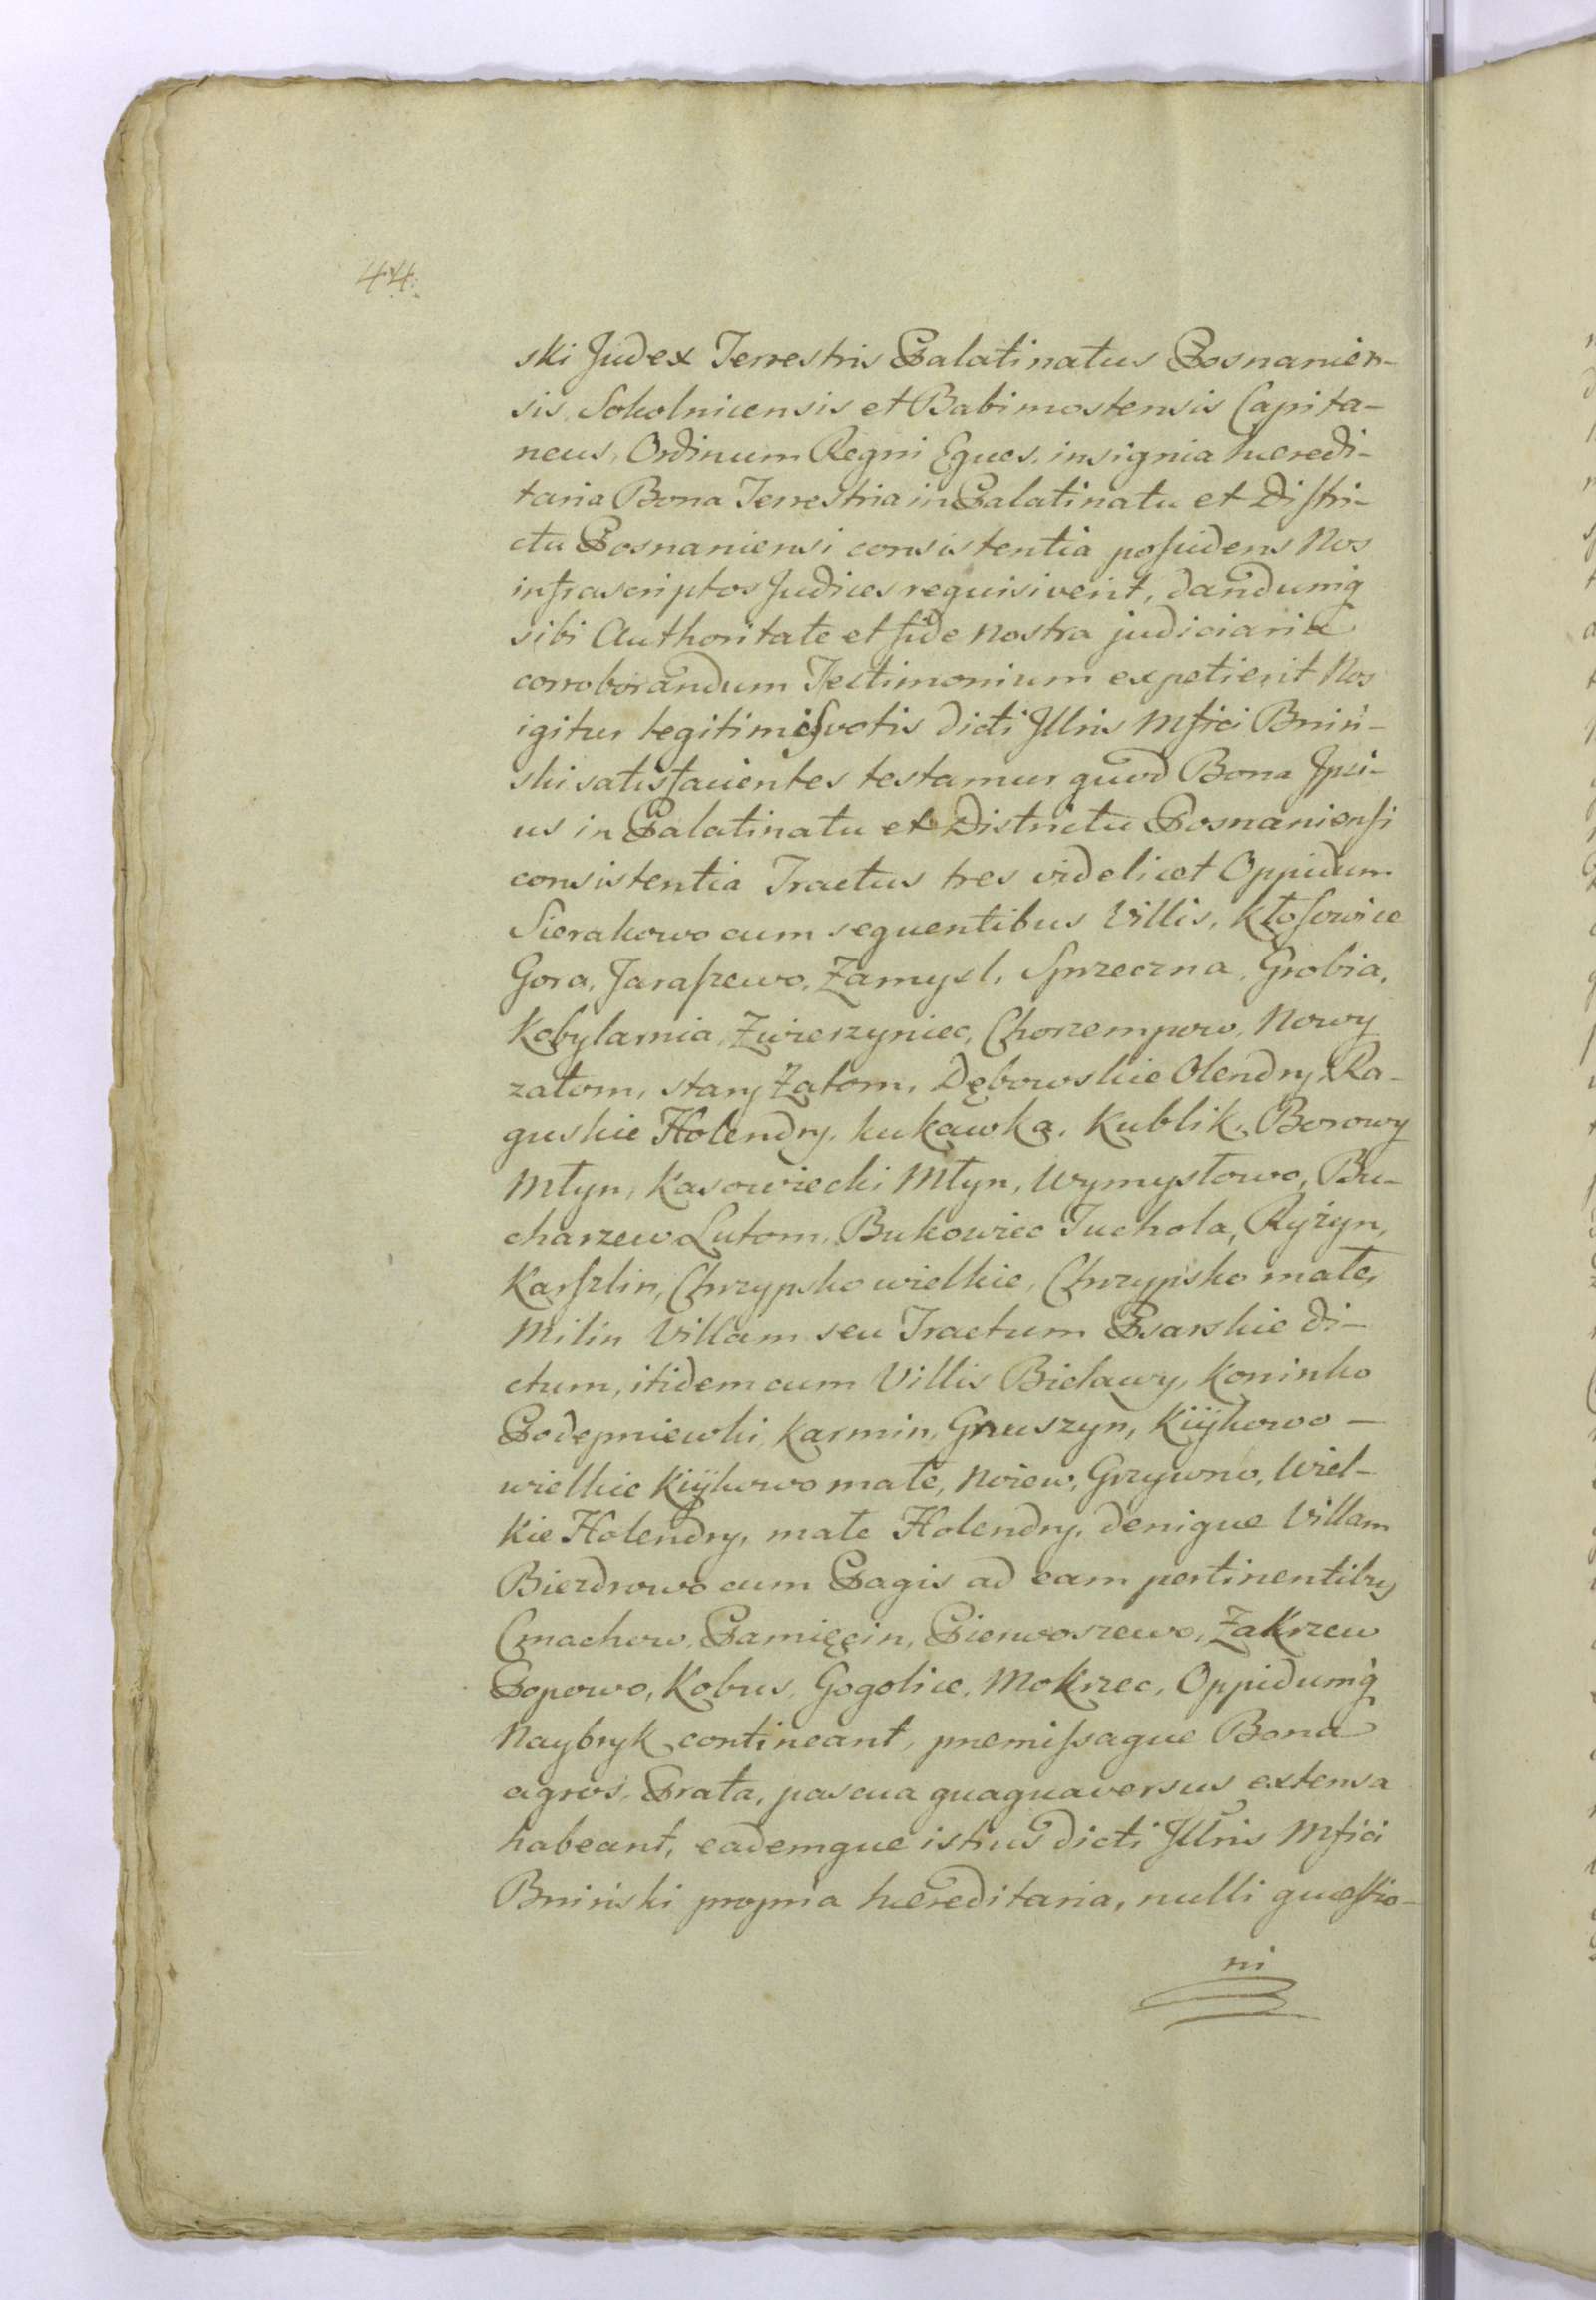 44.
ski Judex Terrestris Palatinatus Posnanien-
sis, Sokolnicensis et Babimostensis Capita-
neus, Ordinum Regni Eques, insignia hæredi-
taria Bona Terrestria in Palatinatu et Distri-
ctu Posnaniensi consistentia possidens Nos
infrascriptos Judices requisiverit, dandumq
sibi Authoritate et fide nostra judiciaria
corroborandum Testimonium expetierit Nos
igitur legitimis votis dicti Jllris Mfici Bniń-
ski satisfacientes testamur quod Bona Jpsi-
us in Palatinatu et Districtu Posnaniensi
consistentia Tractus tres videlicet Oppidum
Sierakowo cum sequentibus Villis, Kłosowice
Gora, Jaraszewo, Zamysl, Sprzeczna, Grobia,
Kobylarnia, Zwierzyniec, Chorzempowo, Nowy
zatom, stary Zatom, Dębowskie Olendry, Ra-
guskie Holendry, kukawka, Kublik, Borowy
Młyn, Kasowiecki Młyn, Wymysłowo, Bu-
charzew Lutom, Bukowiec Tuchola, Ryżyn,
Karszlin, Chrzypsko wielkie, Chrzypsko małe,
Milin Villam seu Tractum Psarskie di-
ctum, itidem cum Villis Bielawy, Koninko
Podepniewki, Karmin, Gnuszyn, Kiÿkowo —
wielkie Kiÿkowo małe, Noiew, Grzywno, Wiel-
kie Holendry, małe Holendry, denique Villam
Biezdrowo cum Pagis ad eam pertinentibus
Cmachow, Pamięcin, Pierwoszewo, Zakrzew
Popowo, Kobus, Gogolice, Mokrzec, Oppidumq
Naybryk contineant, premissaque Bona
agros, Prata, pascua quaquaversus extensa
habeant, eademque istius dicti Jllris Mfici
Bniński propria hæreditaria, nulli quæstio-
ni